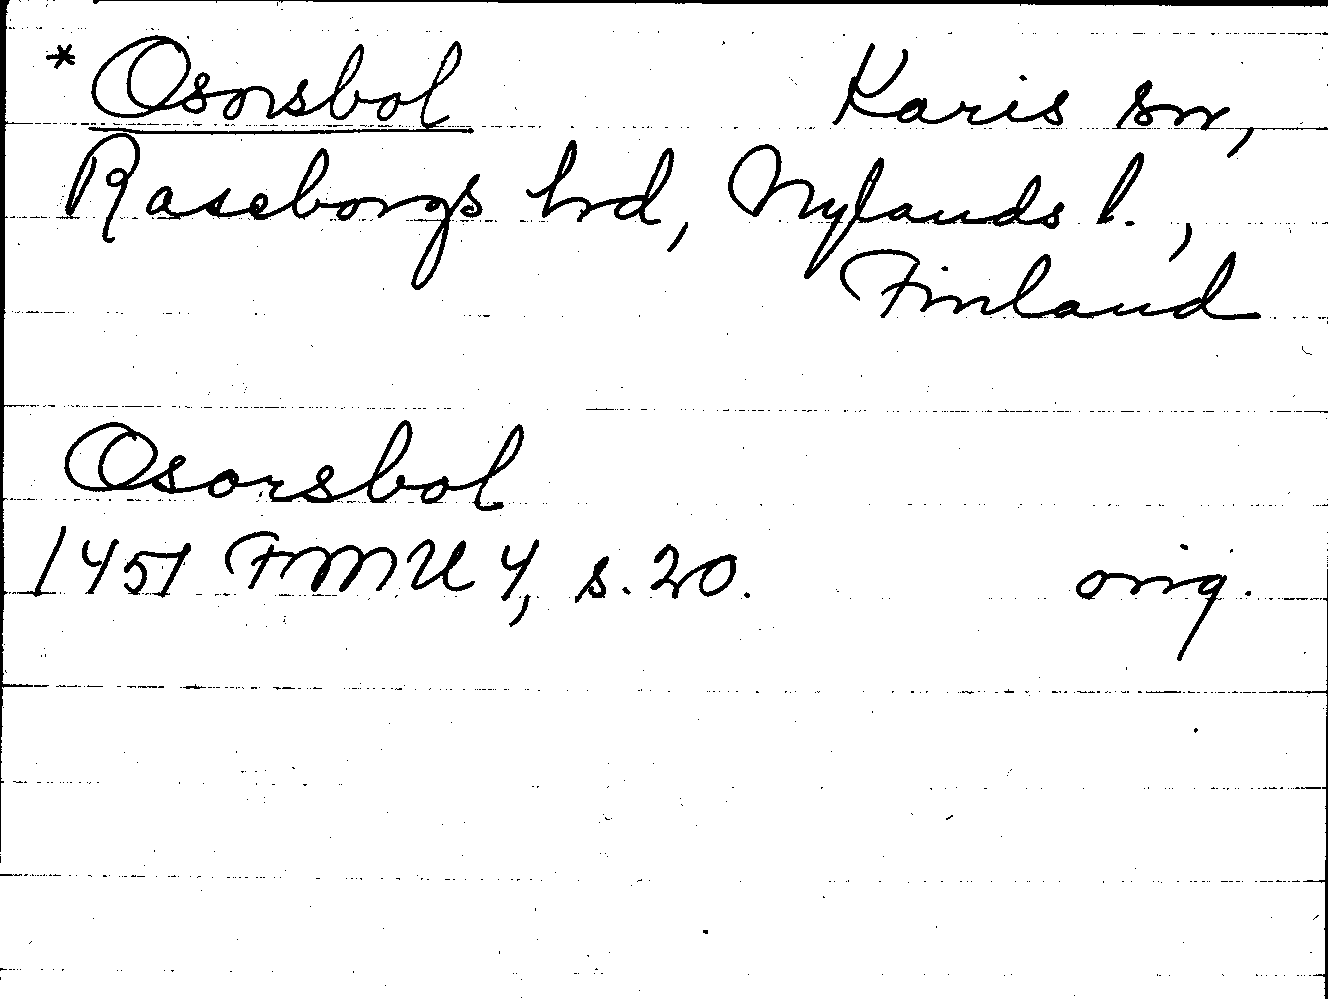 * Osorsbol Karis sn,
Raseborgs hrd, Nylands l.,
Finland
Osorsbol
1451 FMU 4, s. 20. orig.